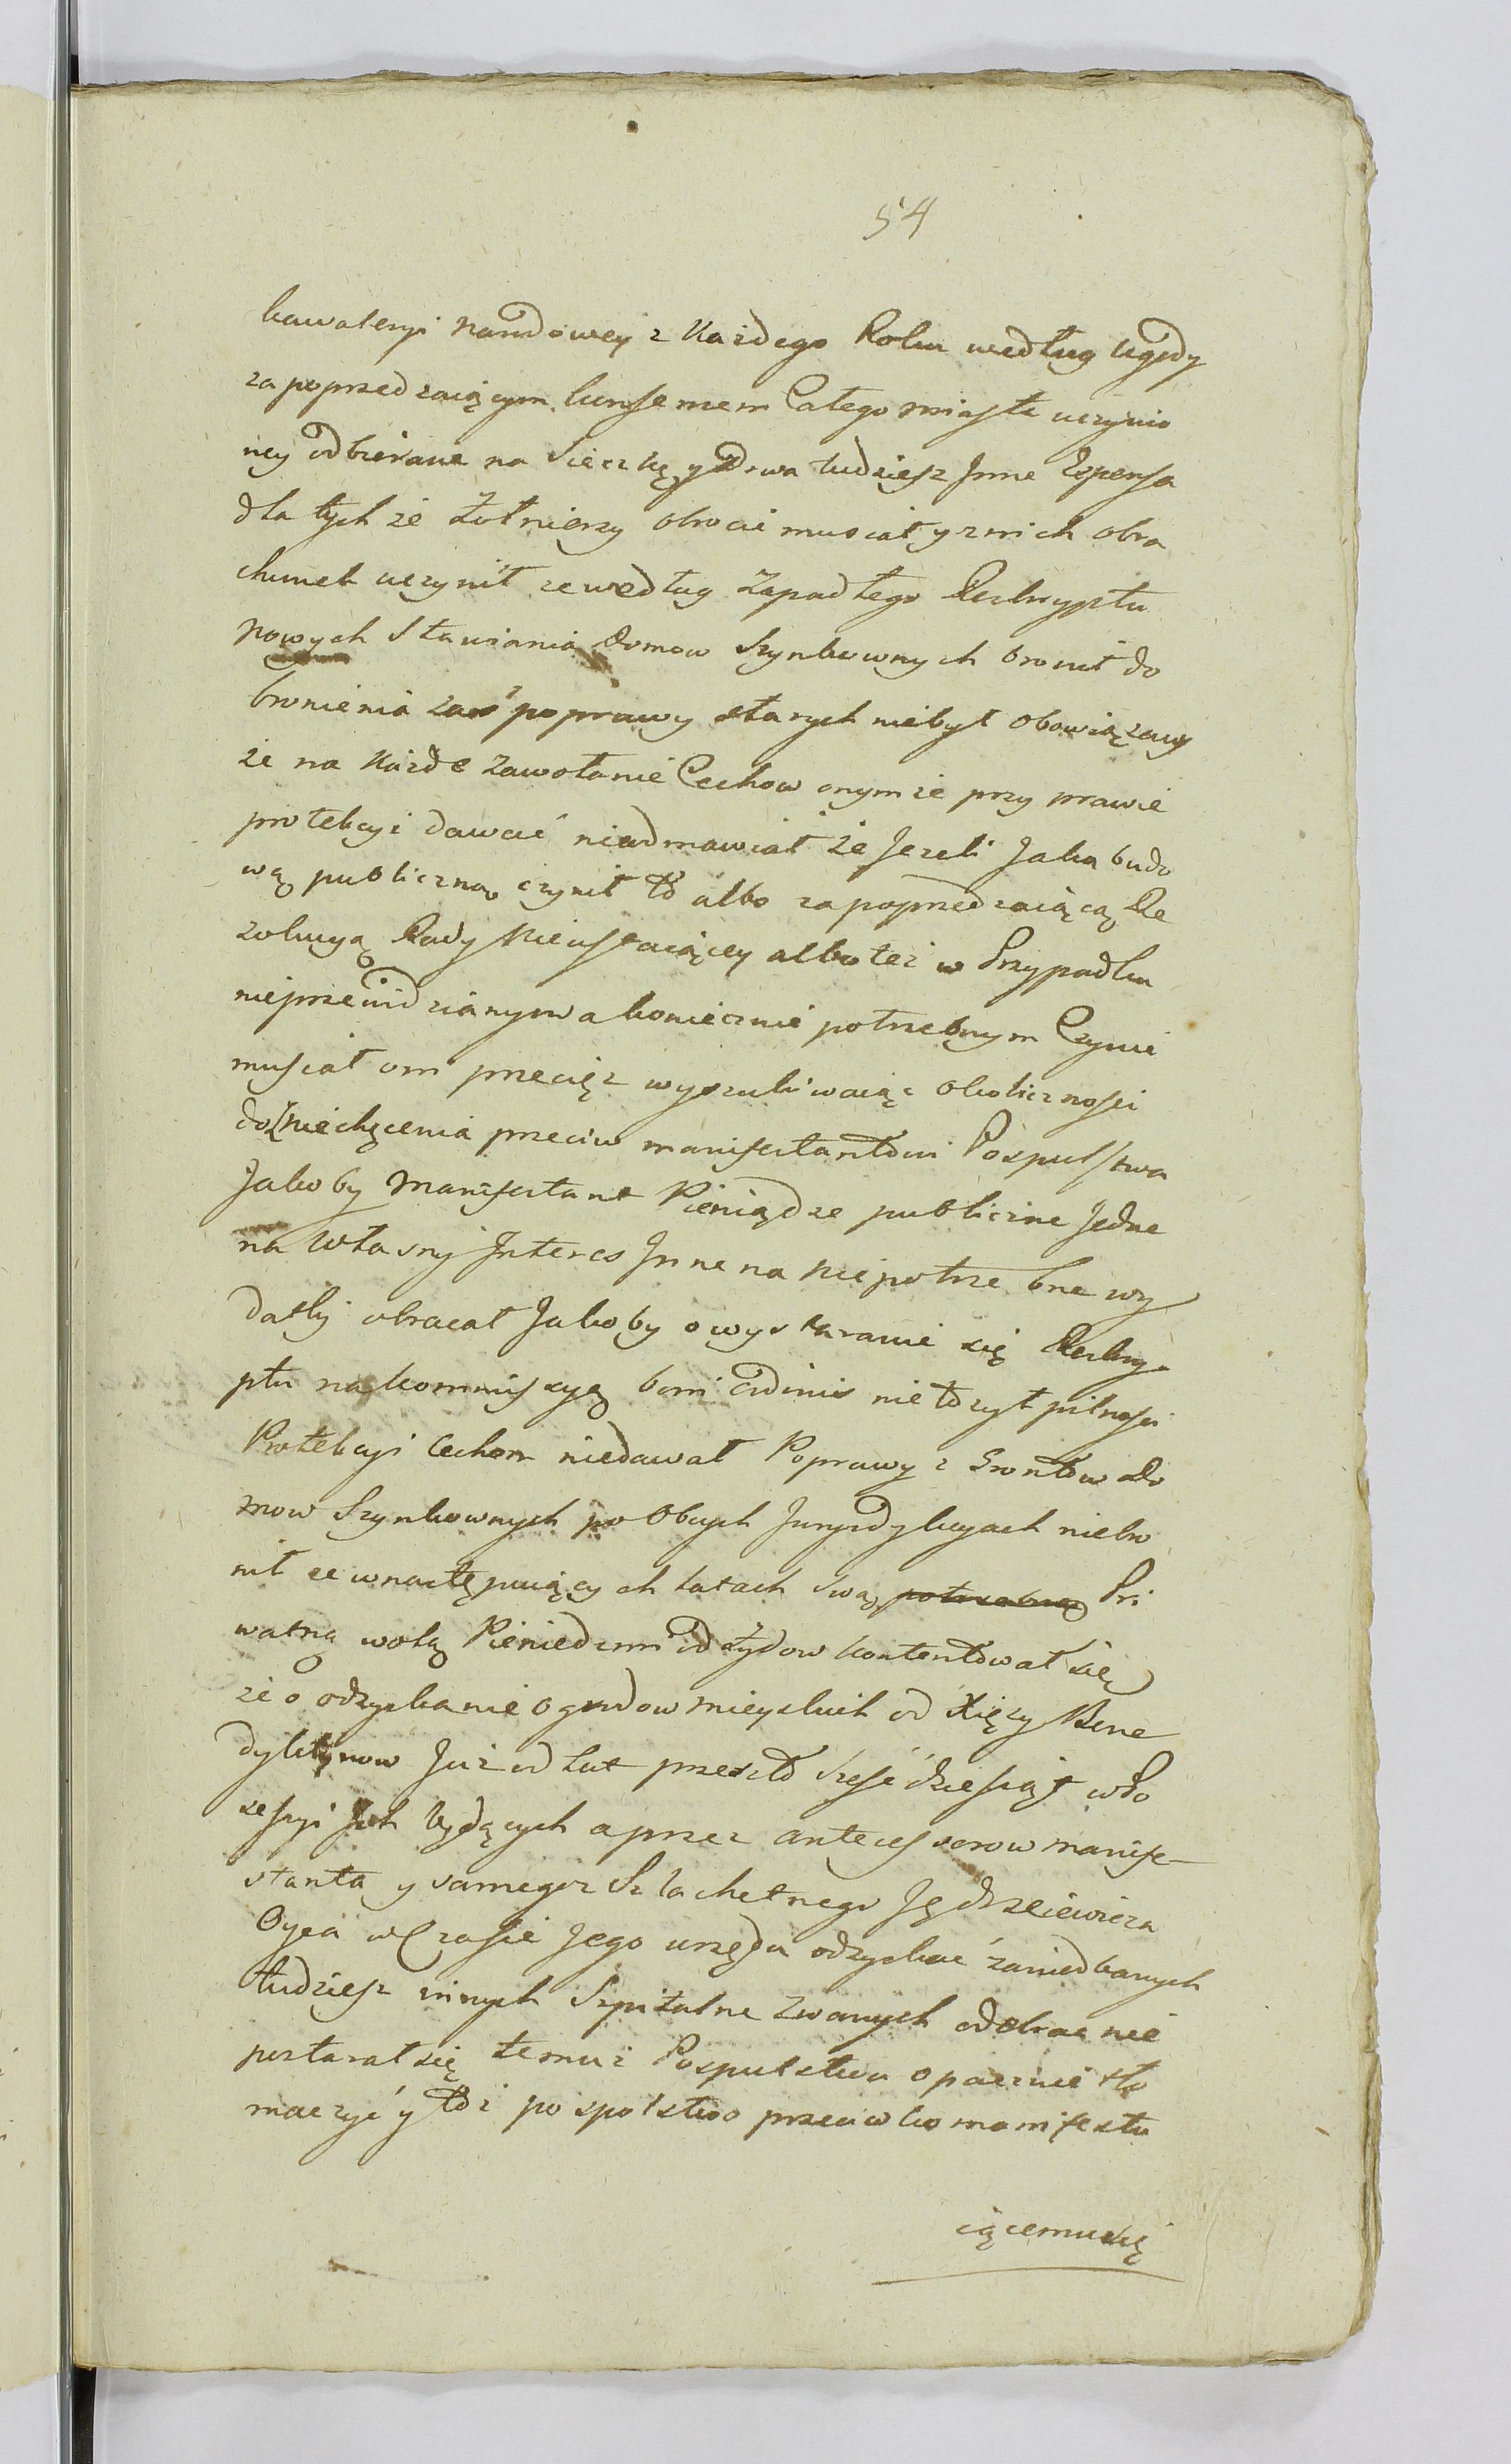 54
kawaleryi Narodowey z Każdego Roku według Ugody
za poprzedzaiącym konsensem Całego miasta uczynio
ney odbierane na Sieczkę y drwa tudziesz Inne Expensa
dla tych że Żołnierzy obrocić musiał y z nich obra
chunek uczynił że według Zapadłego Reskryptu
Nowych Stawiania domow Szynkownych bronił do
bronienia zaś poprawy starych niebył obowiązany
że na Każde Zawołanie Cechow onymże przy prawie
protekcyi dawać nieodmawiał że Jezeli Jaka budo
wą publiczną czynił to albo za poprzedzaiącą Re
zolucyą Rady Nieustaiącey albo też w Przypadku
nieprzewidzianym a koniecznie potrzebnym Czynić
musiał oni przecięż wyszukiwaiąc okolicznosci
do zniechęcenia przeciw manifestantowi Pospulstwa
Jakoby Manifestant Pieniądze publiczne Jedne
na Własny Interes Inne na niepotrzebne wy
datki obracał Jakoby o wystaranie się Reskry
ptu na kommissyą boni ordinis nie łożył pilnosci
Protekcyi Cechom niedawał Poprawy z Grontow do
mow Szynkownych po Obuch Jurysdykcyach niebro
nił ze w następuiących latach swą potrzebną Pri
watną wolą Pieniedzmi od Żydow kontentował się
że o odzyskanie ogrodow mieyskich od Xięży Bene
dyktynow Już od lat przeszło sześćdziesiąt w Po
sessyi Jch będących a przez antecessorow manife-
stanta y samegoż Szlachetnego Jędrzeiewicza
Oyca w Czasie Jego urzędu odzyskać zaniedbanych
tudziesz innych Szpitalne zwanych odebrać nie
postarał się temuż Pospulstwu opacznie tło
maczyć y toż pospolstwo przeciwko manifestu
iącemu się